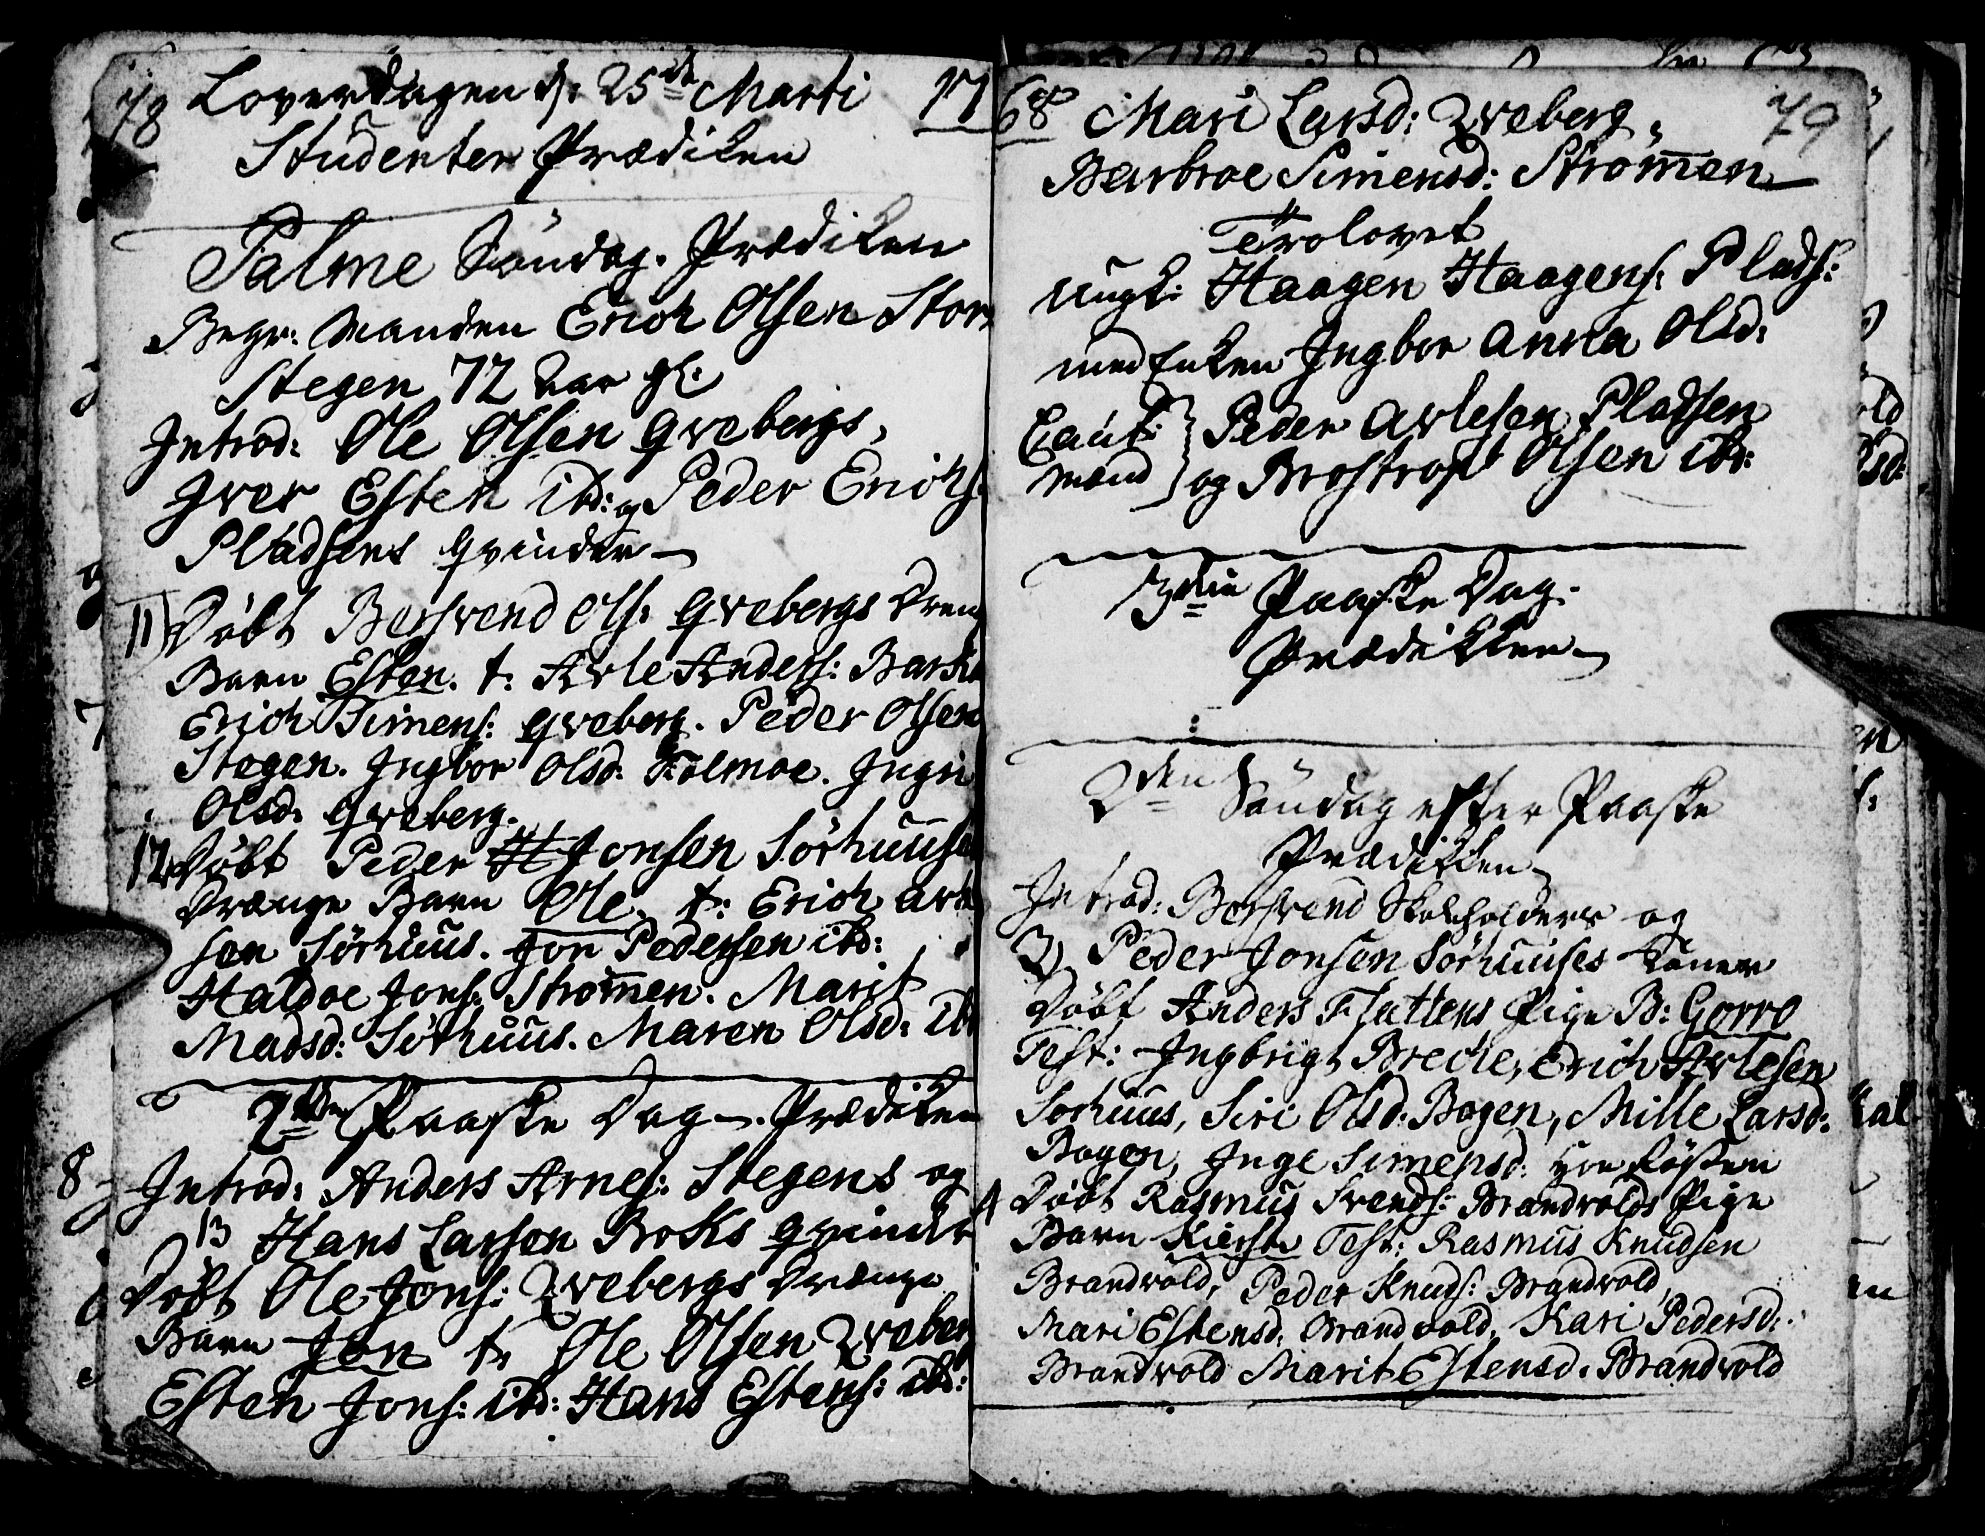 78 Løverdagen d: 25de Marti 17
Studenten Prædiken
Palme Søndag. Prædiken
Begr: Manden Erich Olsen Stor
Stegen 72 aar gl:
Introd: Ole Olsen Qvebergs,
Iver Esten ibd: og Peder Erichs:
Pladsens Qvinder
11) Døbt Bersvend Ols: Qvebergs Dreng
Barn Esten. t: Arle Anders:
Erich Simens: Qveberg. Peder Olsen
Stegen. Ingbor Olsd: Folmoe. Ingri
Olsd: Qveberg.
12 Døbt Peder Jonsen Sörhuuses
Drænge Barn Ole. t: Erich Arle
sen Sörhuus. Jon Pedersen ibd:
Haldoe Jons: Strömen. Marit
Madsd: Sörhuus. Maren Olsd: ibd
2den Paaske Dag. Prædiken
Introd: Anders Arnes: Stegens og
13 Hans Larsen Boks Qvinder
Døbt Ole Jons: Qvebergs Drænge
Barn Jon t: Ole Olsen Qveberg
Esten Jons: ibd: Hans Estens: ibd:
68 Mari Larsd: Qveberg, 79
Barbroe Simensd: Strömen
Trolovet
Ungk: Haagen Haagens: Plads:
med Enken Ingbor Anna Olsd:
Caut: Peder Arlesen Pladsen
mænd og Brostrop Olsen ibd:
3die Paaske Dag.
Prædikken
2den Søndag efter Paaske
Prædikken
Introd: Bersvend Skoleholders og
3) Peder Jonsen Sörhuuses Koner
Døbt Anders Flattens Pige B: Gorro
Test: Ingbrigt Brecke, Erich Arlesen
Sorhuus, Siri Olsd: Bogen, Mille Larsd:
Bogen, Inge Simensd:
4 Døbt Rasmus Svends: Brandvolds Pige
Barn Kierste Test: Rasmus Knudsen
Brandvold, Peder Knuds: Brandvold,
Mari Estensd: Brandvold, Kari Pedersd:
Brandvold Marit Estensd: Brandvold